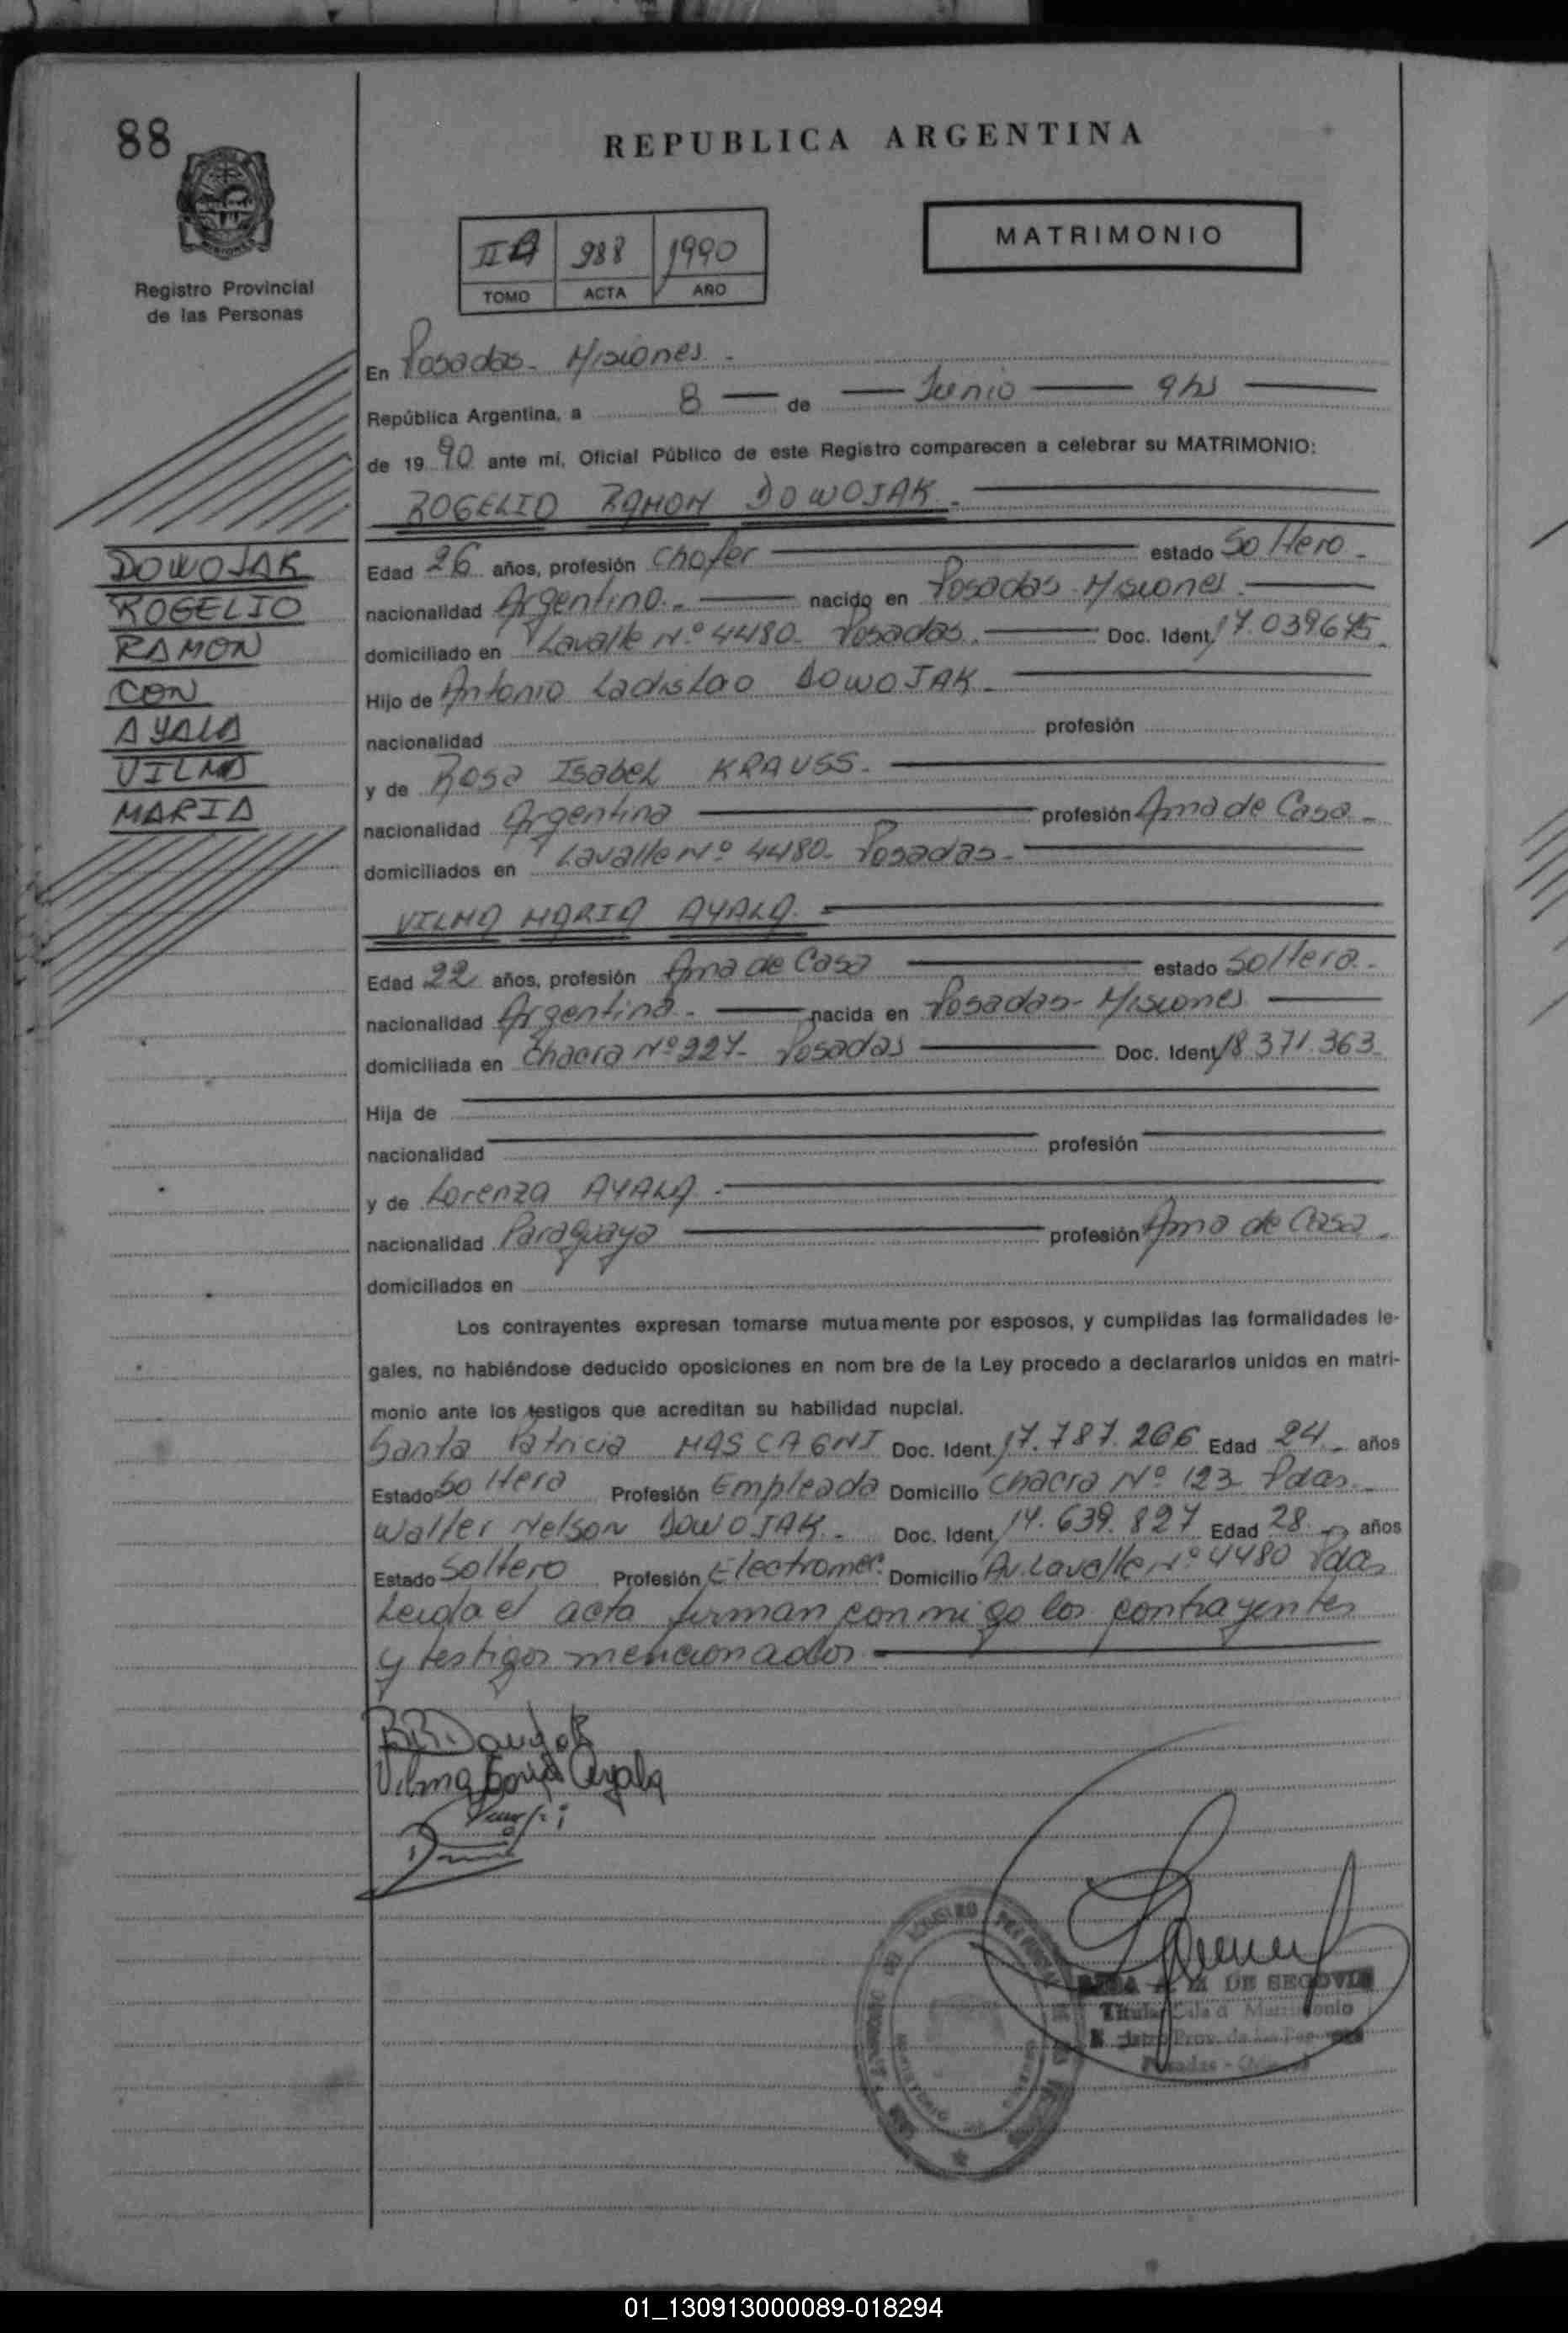 88
REPUBLICA ARGENTINA
MATRIMONIO
II A 988 1990
TOMO ACTA AÑO
Registro Provincial
de las Personas
En Posadas - Misiones.
República Argentina, a 8 de Junio 9 hs
de 19 90 ante mí, Oficial Público de este Registro comparecen a celebrar su MATRIMONIO:
ROGELIO RAMON DOWOJAK.
DOWOJAK
ROGELIO
RAMON
CON
AYALA
VILMA
MARIA
Edad 26 años, profesión Chofer estado Soltero.
nacionalidad Argentino. nacido en Posadas - Misiones.
domiciliado en Lavalle Nº 4480. Posadas. Doc. Ident. 17.039675
Hijo de Antonio Ladislao DOWOJAK.
nacionalidad profesión
y de Rosa Isabel KRAUSS.
nacionalidad Argentina profesión Ama de Casa.
domiciliados en Lavalle Nº 4480. Posadas.
VILMA MARIA AYALA.
Edad 22 años, profesión Ama de Casa estado Soltera.
nacionalidad Argentina. nacida en Posadas - Misiones
domiciliada en Chacra Nº 227. Posadas Doc. Ident. 18.371.363
Hija de
nacionalidad profesión
y de Lorenza AYALA.
nacionalidad Paraguaya profesión Ama de Casa.
domiciliados en
Los contrayentes expresan tomarse mutuamente por esposos, y cumplidas las formalidades le-
gales, no habiéndose deducido oposiciones en nom bre de la Ley procedo a declararlos unidos en matri-
monio ante los testigos que acreditan su habilidad nupcial.
Santa Patricia MASCAGNI Doc. Ident. 17.787.266 Edad 24 años
Estado Soltera Profesión Empleada Domicilio Chacra Nº 123 Pdas.
Walter Nelson DOWOJAK. Doc. Ident. 14.639.827 Edad 28 años
Estado Soltero Profesión Electromec. Domicilio Av. Lavalle Nº 4480 Pdas
Leida el acta firman conmigo los contrayentes
y testigos mencionados
Vilma María Ayala
DE SEGOVIA
01_130913000089-018294